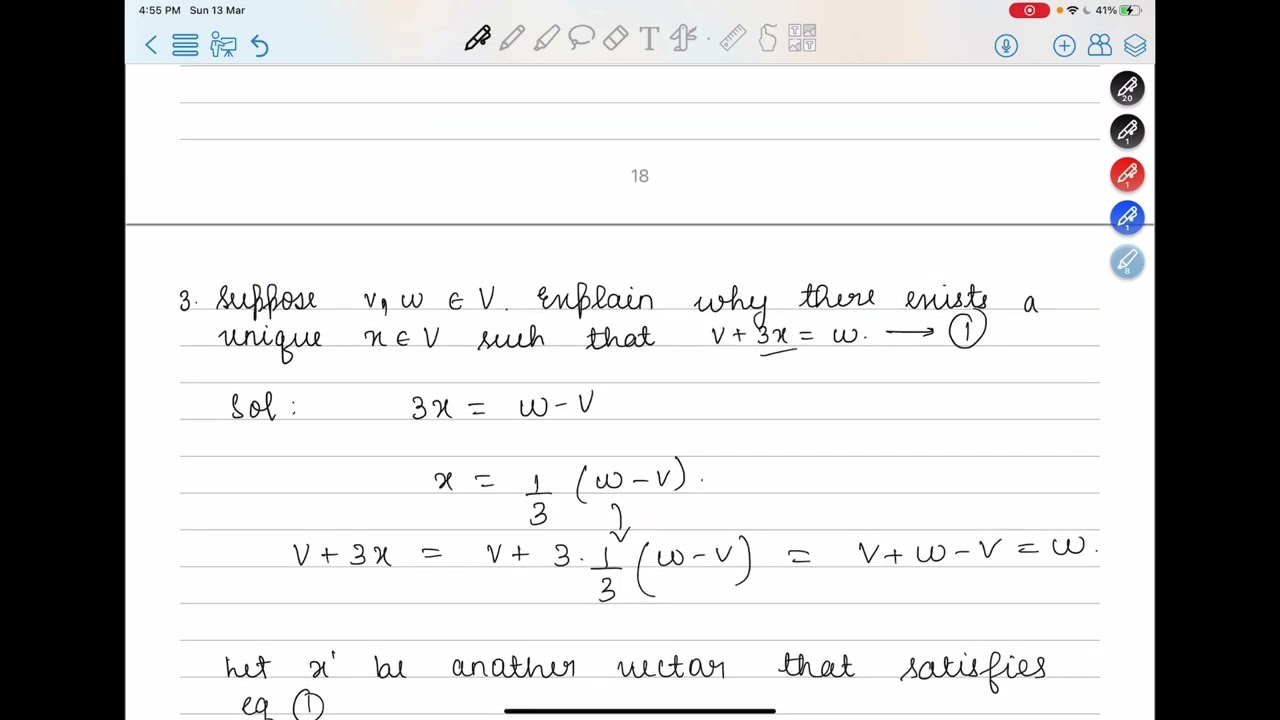 4:55 PM Sun 13 Mar
41%
T
20
1
1
1
8
18
3. Suppose v, w ∈ V. Explain why there exists a
unique x ∈ V such that v + 3x = w. → ①
Sol : 3x = w - v
x = 1/3 (w - v).
v + 3x = v + 3 . 1/3 (w - v) = v + w - v = w.
Let x' be another vector that satisfies
eq ①